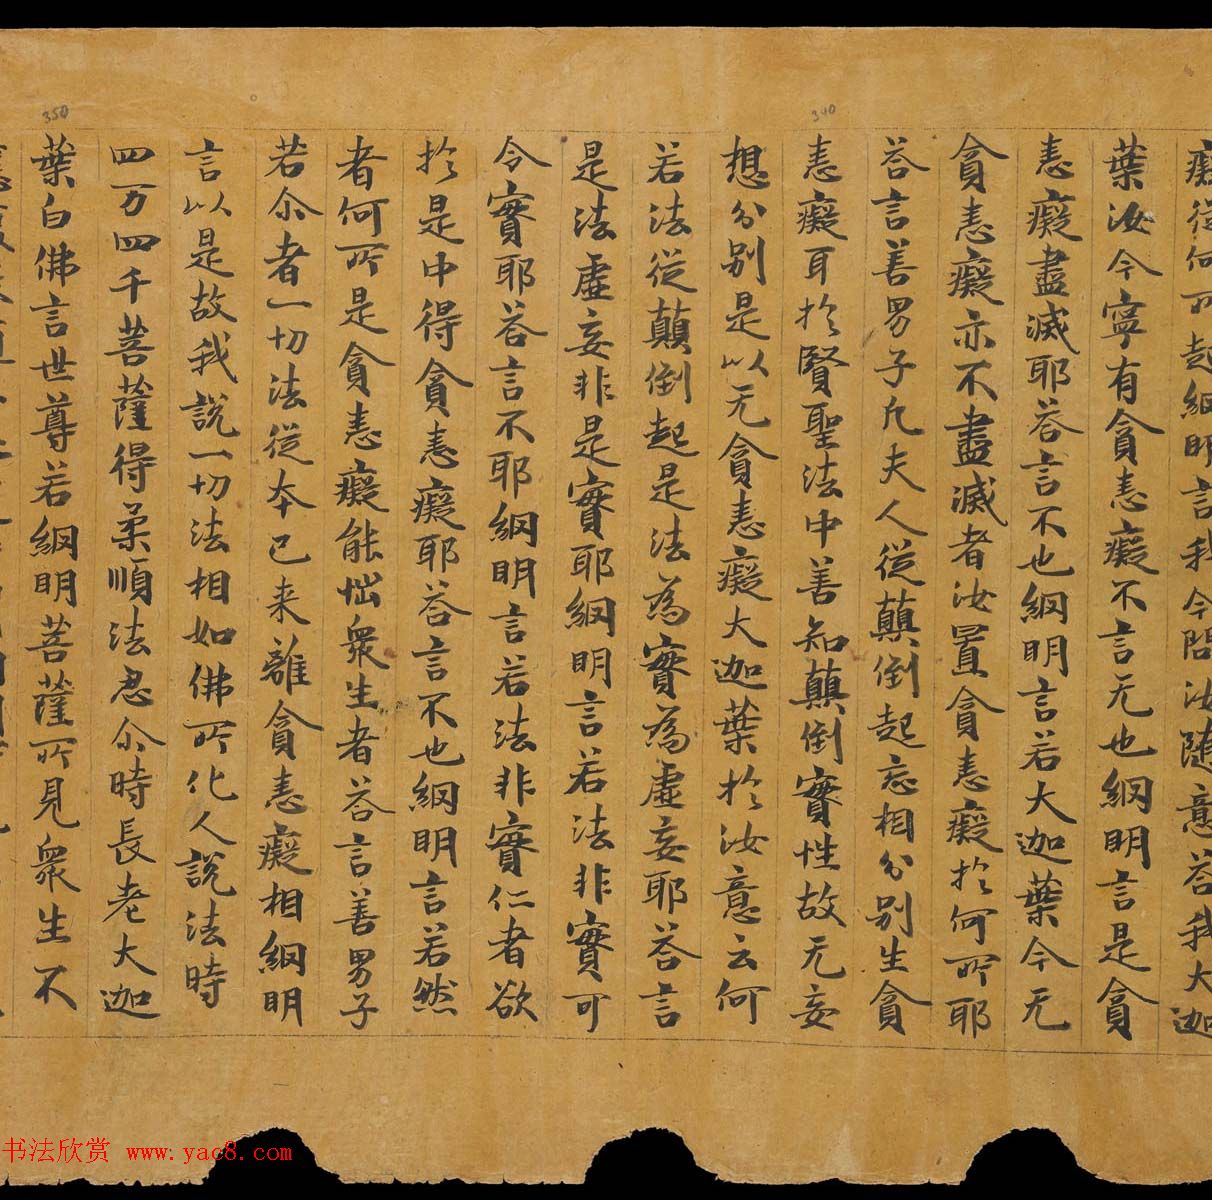 癡從何所起網明言我今問汝随意荅我大迦
葉汝今寧有貪恚癡不言无也網明言是貪
恚癡盡滅耶荅言不也網明言若大迦葉今无
貪恚癡亦不盡滅者汝置貪恚癡扵何所耶
荅言善男子凢夫人從顛倒起忘相分别生貪
恚癡耳扵賢聖法中善知顛倒實性故无妄
想分别是以无貪恚癡大迦葉扵汝意云何
若法從顛倒起是法為實為虚妄耶荅言
是法虚妄非是實耶網明言若法非實可
令實耶荅言不耶網明言若法非實仁者欲
扵是中得貪恚癡耶荅言不也網明言若然
者何所是貪恚癡能惱衆生者荅言善男子
若尒者一切法從本已来離貪恚癡相網明
言以是故我説一切法相如佛所化人説法時
四万四千菩薩得柔順法忍尒時長老大迦
葉白佛言世尊若網明菩薩所見衆生不
350
340
书法欣赏 www.yac8.com